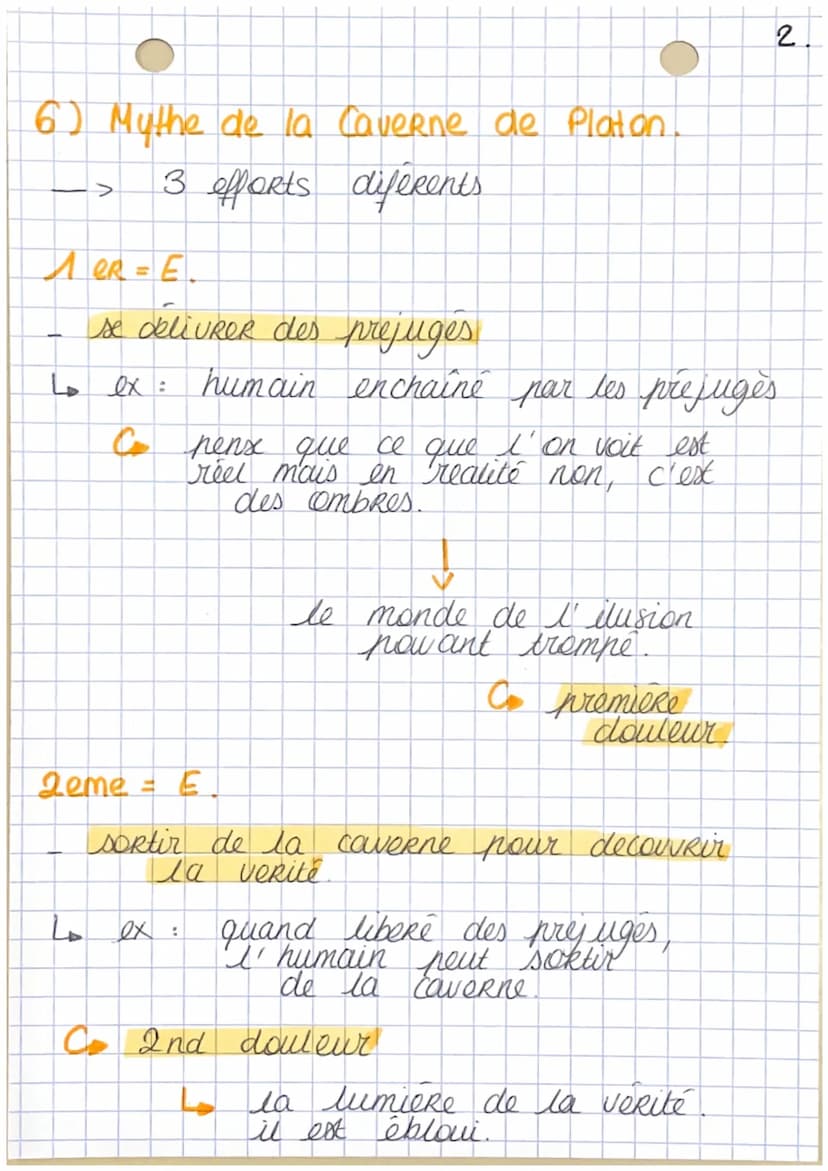 2.
6) Mythe de la Caverne de Platon.
—> 3 efforts diférents
1 er = E.
- se délivrer des préjugés
↳ ex : humain enchaîné par les préjugès
↳ pense que ce que l'on voit est
réel mais en réalité non, c'est
des ombres.
↓
le monde de l'ilusion
pouvant trompé.
↳ première
douleur.
2eme = E.
- sortir de la caverne pour decouvrir
la verité.
↳ ex : quand liberé des préjugés,
l'humain peut sortir
de la caverne.
↳ 2nd douleur
↳ la lumière de la vérité.
il est ébloui.